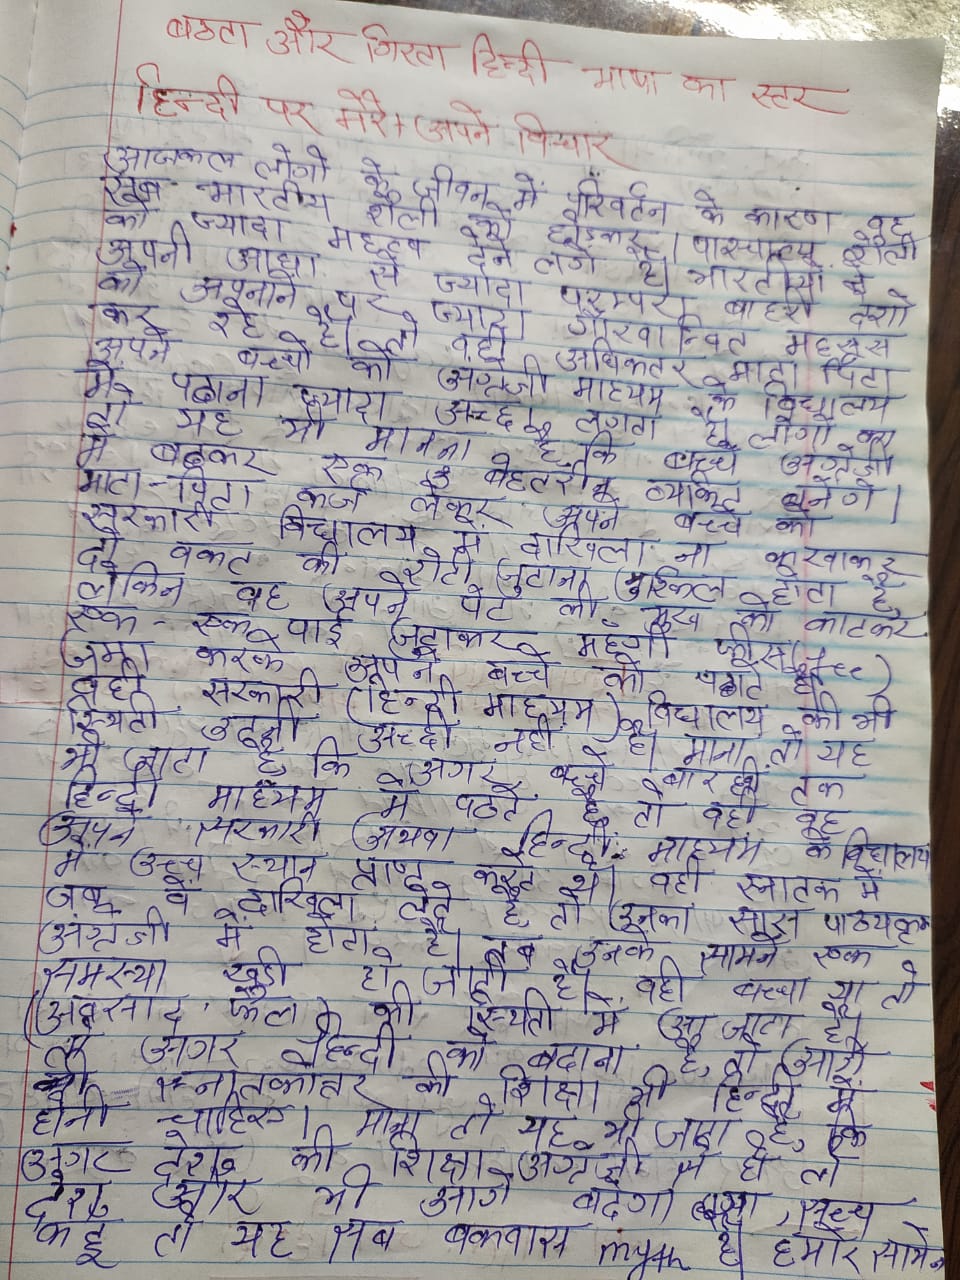 बढता और गिरता हिन्दी भाषा का स्तर
हिन्दी पर मेरे अपने विचार
आजकल लोगो के जीवन में परिवर्तन के कारण वह
भारतीय शैली को छोड़कर पास्चात्य शैली
को ज्यादा महत्व देने लगे है। भारतीयो ने
अपनी आधा से ज्यादा परम्परा बाहरी देशो
को अपनाने पर ज्यादा गौरवान्वित महसूस
कर रहे है। तो वही अधिकतर माता पिता
अपने बच्चो को अग्रेजी माध्यम के विद्यालय
में पढाना ज्यादा अच्छा लगता है। लोगो का
तो यह भी मानना है, कि बच्चे अग्रेजी
में बढकर एक बेहतरीन व्यक्ति बनेंगे।
माता-पिता कर्ज लेकर अपने बच्चे को
सरकारी विद्यालय में दाखिला ना करवाकर
दो वक्त की रोटी जुटाना मुश्किल होता है,
लेकिन वह अपने पेट की भूख को काटकर
एक-एक पाई जुटाकर महगी फीस
जमा करके अपने बच्चे को पढाते है।
वही सरकारी (हिन्दी माध्यम) विद्यालय की भी
स्थिती उतनी अच्छी नही है। माना तो यह
भी जाता है, कि अगर बच्चे बारहवी तक
हिन्दी माध्यम में पढते है, तो वही वह
अपने सरकारी अथवा हिन्दी माध्यम के विद्यालय
में उच्च स्थान प्राप्त करते थे। वही स्नातक में
जब वे दाखिला लेते है, तो उनका सारा पाठयक्रम
अग्रेजी में होता है। तब उनके सामने एक
समस्या खडी हो जाती है। वही बच्चा या तो
अवसाद, फेल की स्थिती में आ जाता है।
अगर हिन्दी को बढाना है, तो आगे
की स्नातकोत्तर की शिक्षा भी हिन्दी में
होनी चाहिए। माना तो यह भी जाता है, कि
अगर देश की शिक्षा अग्रेजी में हो तो
देश और भी आगे बढेगा, सच
कहूं तो यह सब बकवास myth है। हमारे सामने